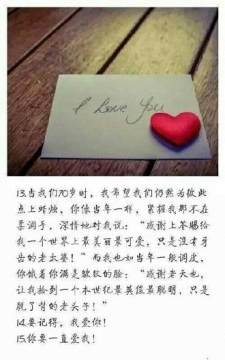 I Love You
13.当我们70岁时，我希望我们仍然为彼此
点上蜡烛，你像当年一样，紧握我那不在
柔润手，深情地对我说：“感谢上苍赐给
我一个世界上最美丽最可爱，只是没才牙
齿的老太婆！”而我也如当年一般调皮，
你满是皱纹的脸：“感谢老天也，
让我捡到一个本世纪最英俊最聪明，只是
脱了背的老头子！”
14.要记得，我爱你！
15.你要一直爱我！